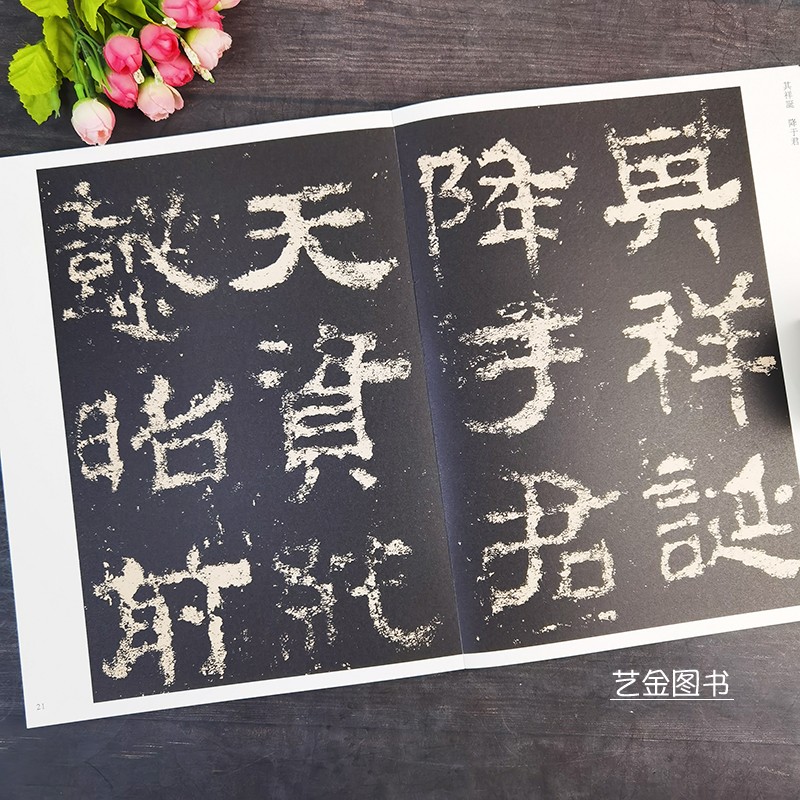 其祥誕
降于君
天資純
懿昭前
其祥誕 降于君
21
艺金图书